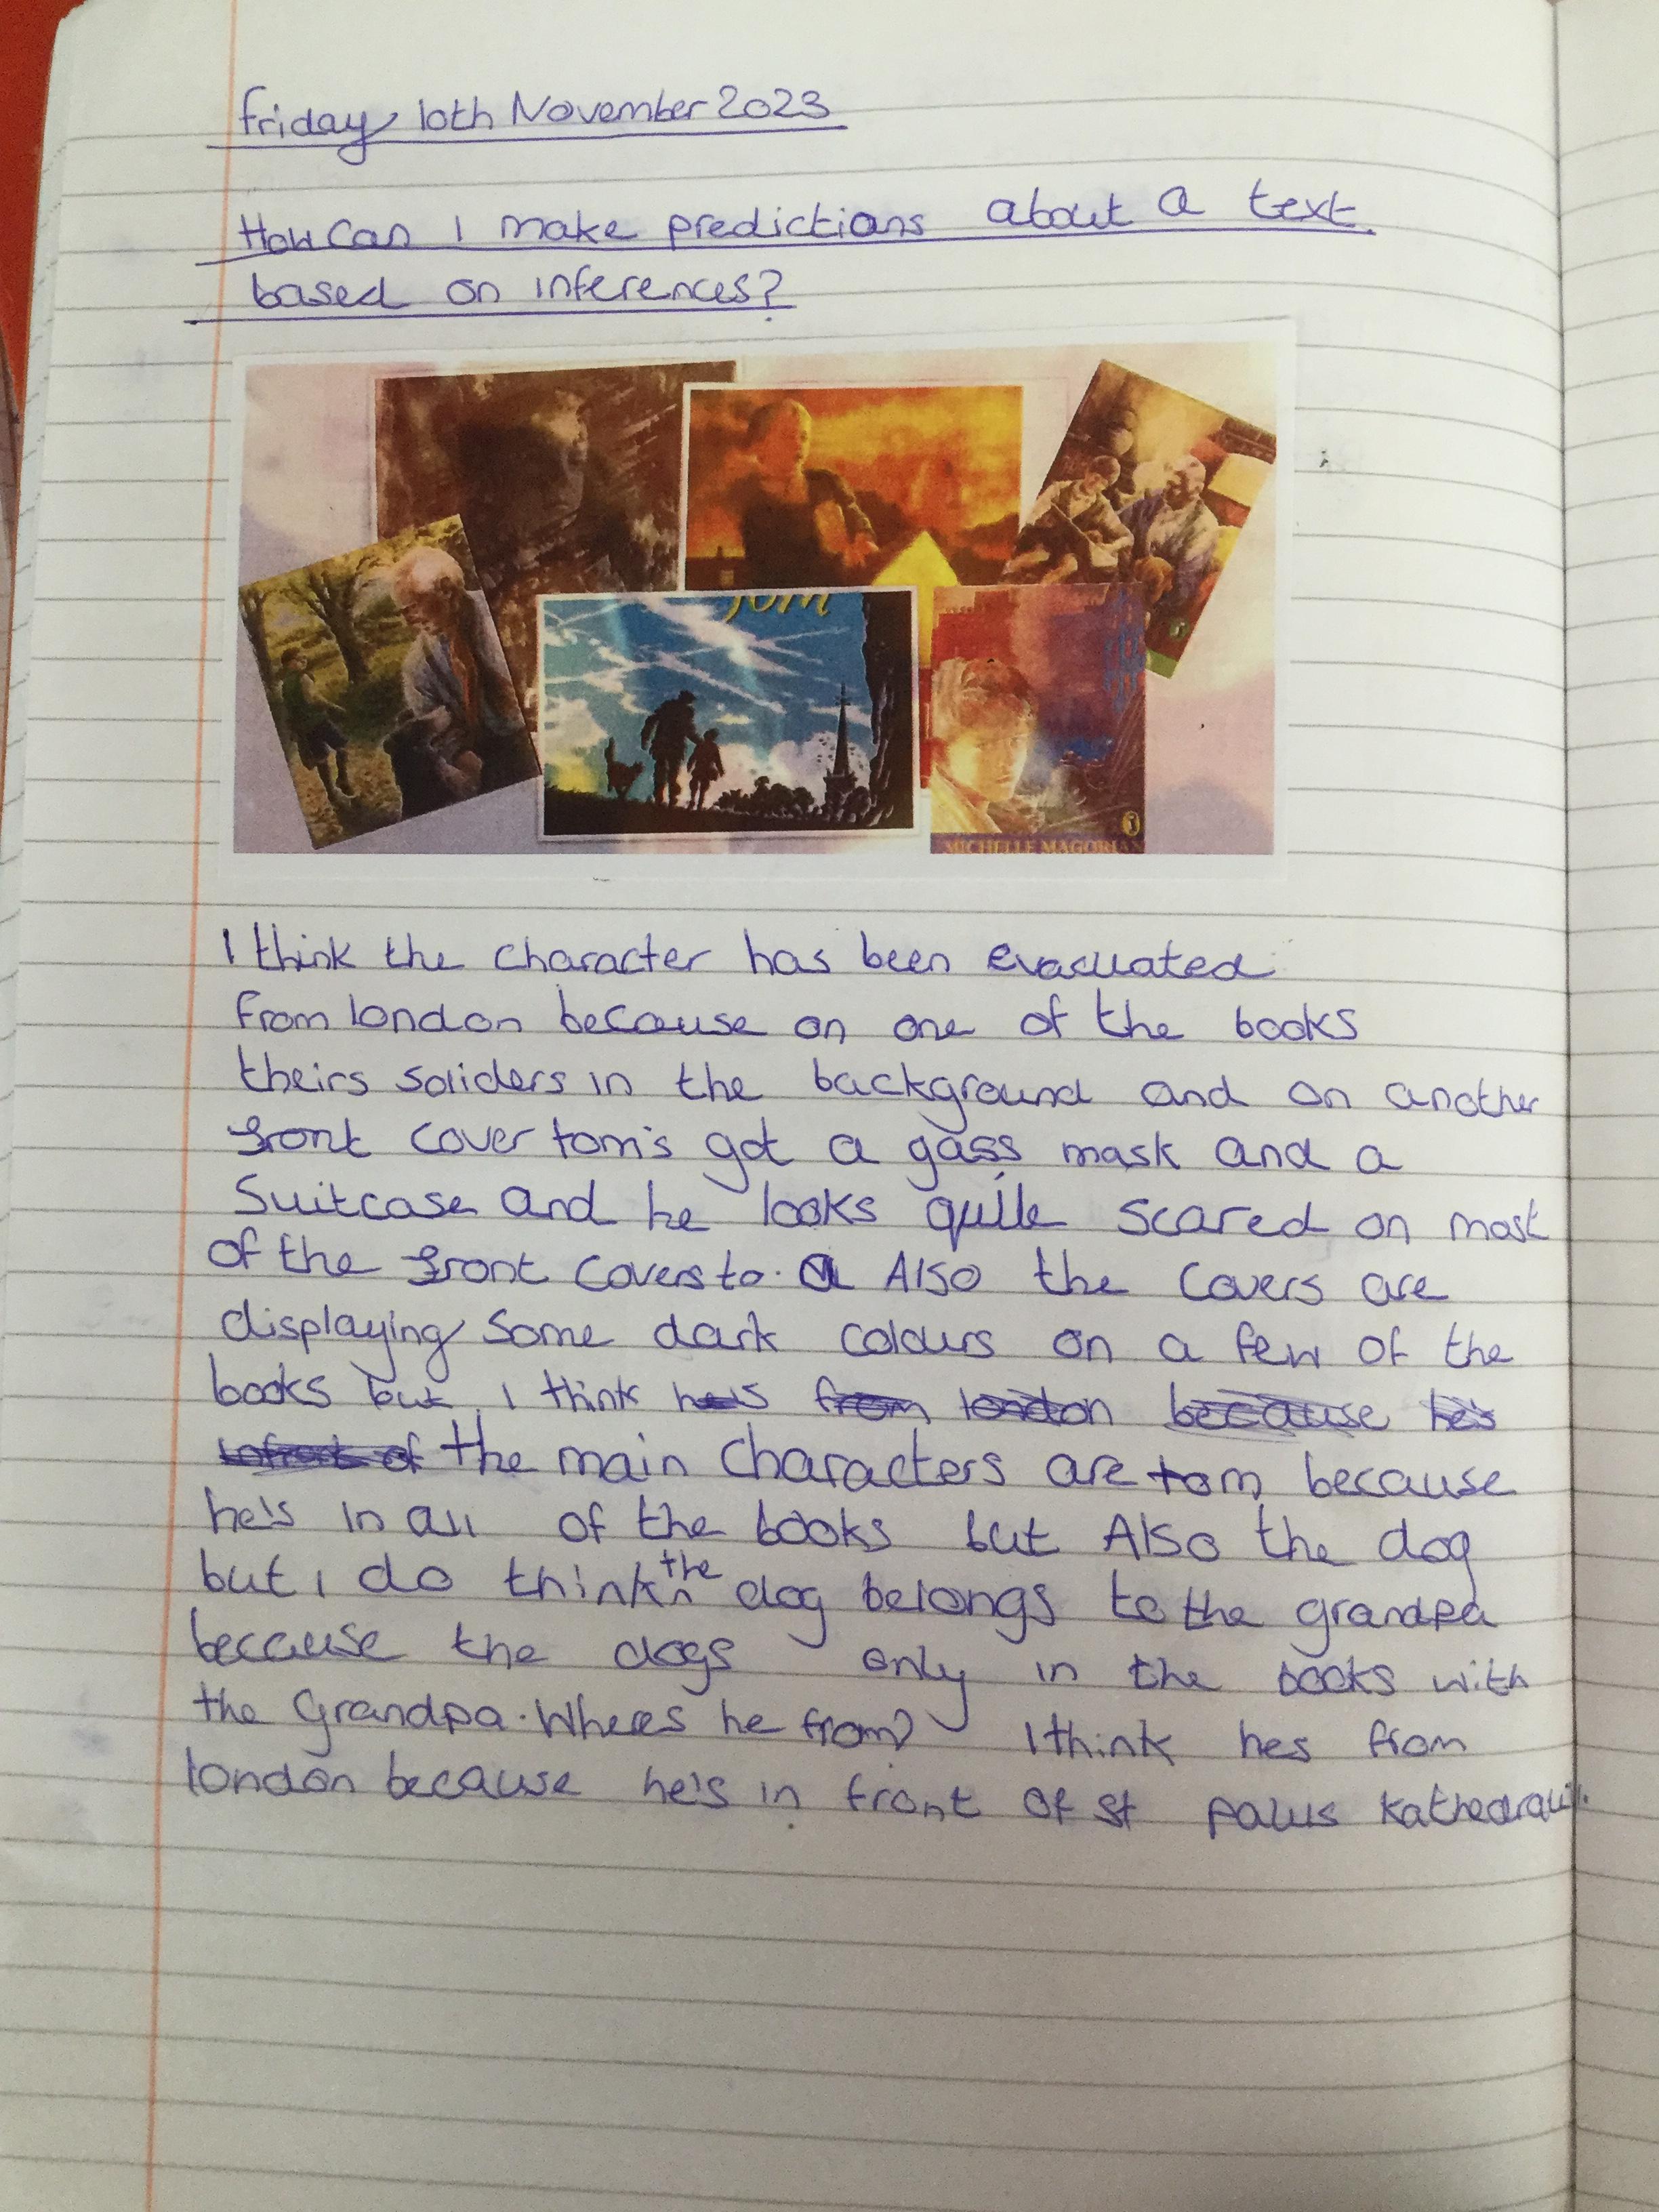 friday 10th November 2023
How Can I make predictions about a text
based on inferences?
Tom
MICHELLE MAGORIAN
I think the character has been evacuated
from london because on one of the books
theirs soliders in the background and on another
front cover tom's got a gass mask and a
Suitcase and he looks quite scared on most
of the front covers to. Also the covers are
displaying some dark colours on a few of the
books but I think he's from london because he's
infront of the main characters are tom because
he's in all of the books but Also the dog
but I do think the dog belongs to the grandpa
because the dogs only in the books with
the Grandpa. Wheres he from? I think hes from
london because he's in front of st pauls Kathedraul.